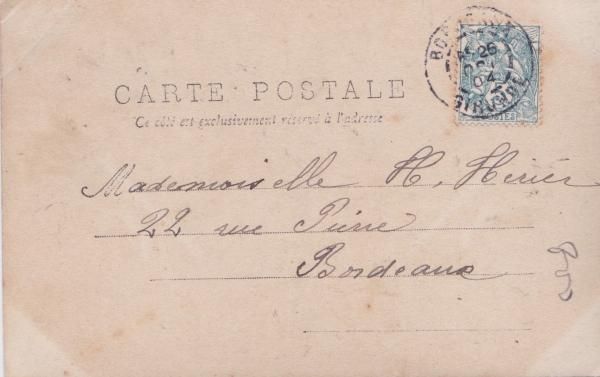 CARTE POSTALE
Ce côté est exclusivement réservé à l'adresse
Mademoiselle H. Herier
22 rue Pierre
Bordeaux
BORDEAUX
26
04
GIRONDE
POSTES